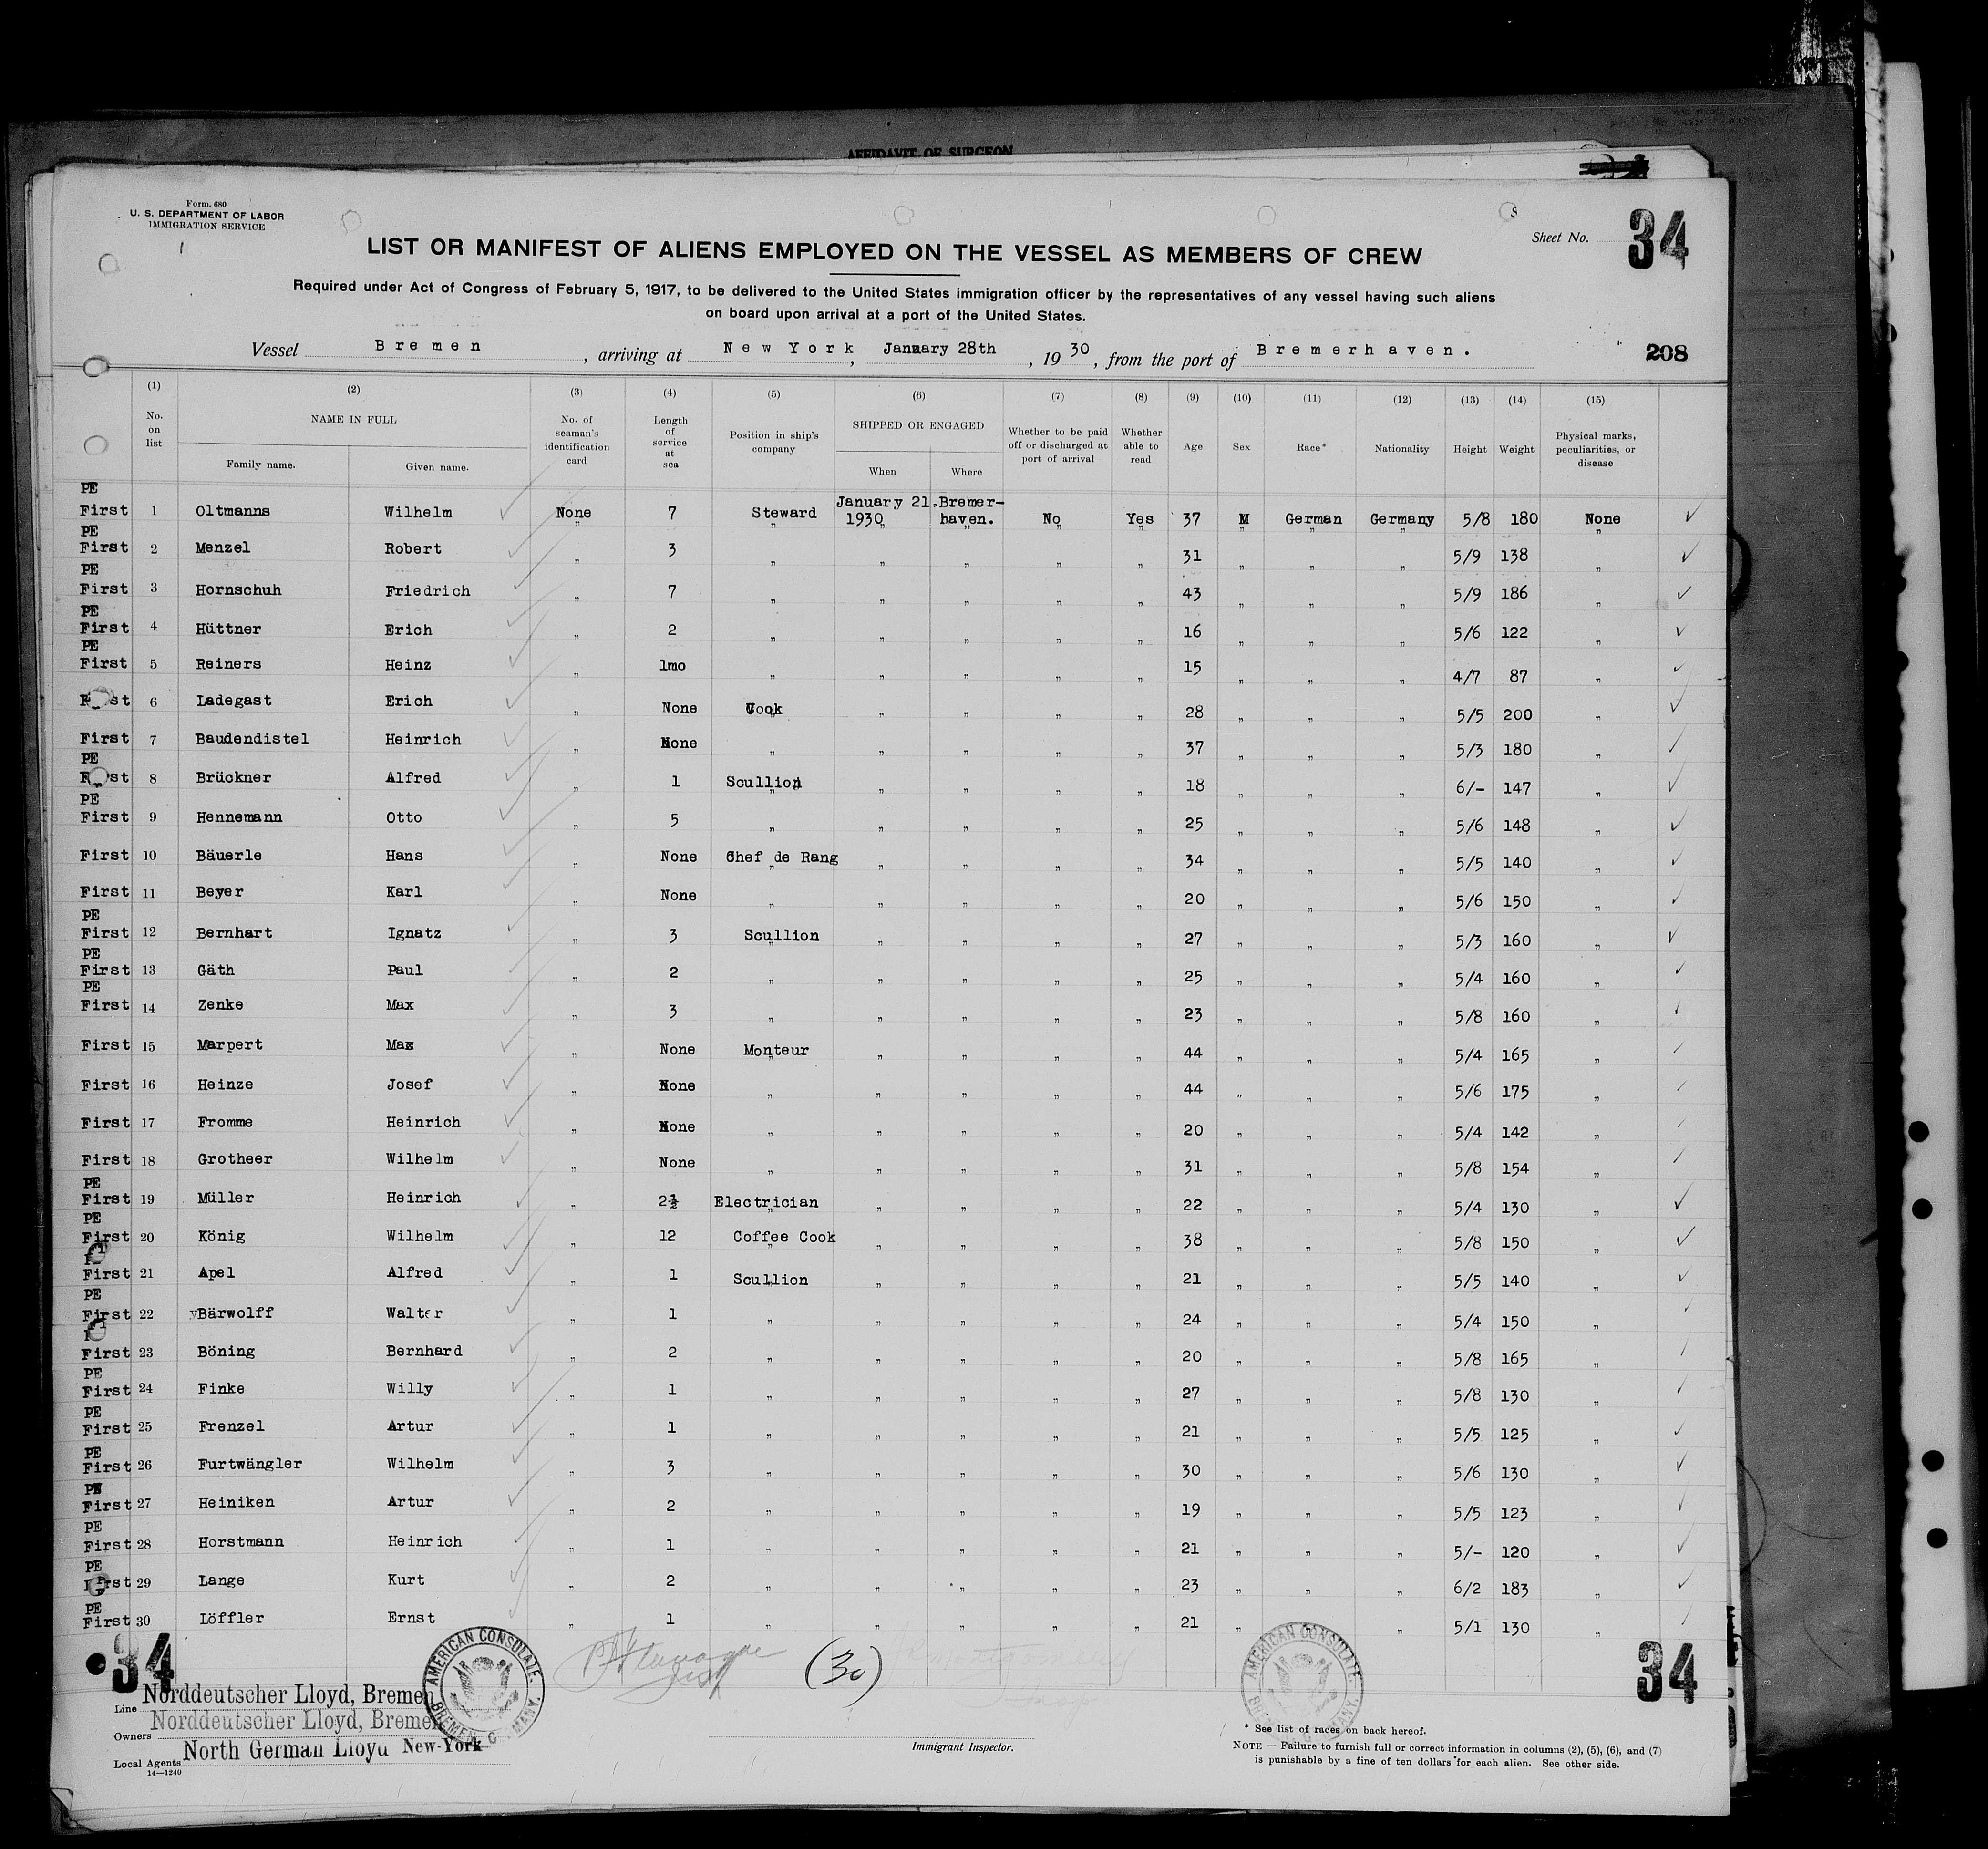 AFFIDAVIT OF SURGEON
Form. 680
U. S. DEPARTMENT OF LABOR
IMMIGRATION SERVICE
Sheet No. 34
LIST OR MANIFEST OF ALIENS EMPLOYED ON THE VESSEL AS MEMBERS OF CREW
Required under Act of Congress of February 5, 1917, to be delivered to the United States immigration officer by the representatives of any vessel having such aliens
on board upon arrival at a port of the United States.
Vessel Bremen, arriving at New York, January 28th, 1930, from the port of Bremerhaven. 208
(1) (2) (3) (4) (5) (6) (7) (8) (9) (10) (11) (12) (13) (14) (15)
No. on list NAME IN FULL Family name. Given name. No. of seaman's identification card Length of service at sea Position in ship's company SHIPPED OR ENGAGED When Where Whether to be paid off or discharged at port of arrival Whether able to read Age Sex Race* Nationality Height Weight Physical marks, peculiarities, or disease
PE First 1 Oltmanns Wilhelm None 7 Steward January 21. 1930 Bremer-haven. No Yes 37 M German Germany 5/8 180 None
PE First 2 Menzel Robert " 3 " " " " " 31 " " " 5/9 138 "
PE First 3 Hornschuh Friedrich " 7 " " " " " 43 " " " 5/9 186 "
PE First 4 Hüttner Erich " 2 " " " " " 16 " " " 5/6 122 "
PE First 5 Reiners Heinz " 1mo " " " " " 15 " " " 4/7 87 "
First 6 Ladegast Erich " None Cook " " " " 28 " " " 5/5 200 "
First 7 Baudendistel Heinrich " None " " " " " 37 " " " 5/3 180 "
PE First 8 Brückner Alfred " 1 Scullion " " " " 18 " " " 6/- 147 "
PE First 9 Hennemann Otto " 5 " " " " " 25 " " " 5/6 148 "
First 10 Bäuerle Hans " None Chef de Rang " " " " 34 " " " 5/5 140 "
First 11 Beyer Karl " None " " " " " 20 " " " 5/6 150 "
PE First 12 Bernhart Ignatz " 3 Scullion " " " " 27 " " " 5/3 160 "
PE First 13 Gäth Paul " 2 " " " " " 25 " " " 5/4 160 "
PE First 14 Zenke Max " 3 " " " " " 23 " " " 5/8 160 "
First 15 Marpert Max " None Monteur " " " " 44 " " " 5/4 165 "
First 16 Heinze Josef " None " " " " " 44 " " " 5/6 175 "
First 17 Fromme Heinrich " None " " " " " 20 " " " 5/4 142 "
First 18 Grotheer Wilhelm " None " " " " " 31 " " " 5/8 154 "
PE First 19 Müller Heinrich " 2½ Electrician " " " " 22 " " " 5/4 130 "
PE First 20 König Wilhelm " 12 Coffee Cook " " " " 38 " " " 5/8 150 "
First 21 Apel Alfred " 1 Scullion " " " " 21 " " " 5/5 140 "
PE First 22 Bärwolff Walter " 1 " " " " " 24 " " " 5/4 150 "
First 23 Böning Bernhard " 2 " " " " " 20 " " " 5/8 165 "
PE First 24 Finke Willy " 1 " " " " " 27 " " " 5/8 130 "
PE First 25 Frenzel Artur " 1 " " " " " 21 " " " 5/5 125 "
PE First 26 Furtwängler Wilhelm " 3 " " " " " 30 " " " 5/6 130 "
PE First 27 Heiniken Artur " 2 " " " " " 19 " " " 5/5 123 "
PE First 28 Horstmann Heinrich " 1 " " " " " 21 " " " 5/- 120 "
PE First 29 Lange Kurt " 2 " " " " " 23 " " " 6/2 183 "
PE First 30 Löffler Ernst " 1 " " " " " 21 " " " 5/1 130 "
34 AMERICAN CONSULATE. BREMEN, GERMANY. (30) AMERICAN CONSULATE. BREMEN, GERMANY. 34
Line Norddeutscher Lloyd, Bremen
Owners Norddeutscher Lloyd, Bremen
Local Agents North German Lloyd New-York
14—1240
Immigrant Inspector.
* See list of races on back hereof.
NOTE — Failure to furnish full or correct information in columns (2), (5), (6), and (7)
is punishable by a fine of ten dollars for each alien. See other side.